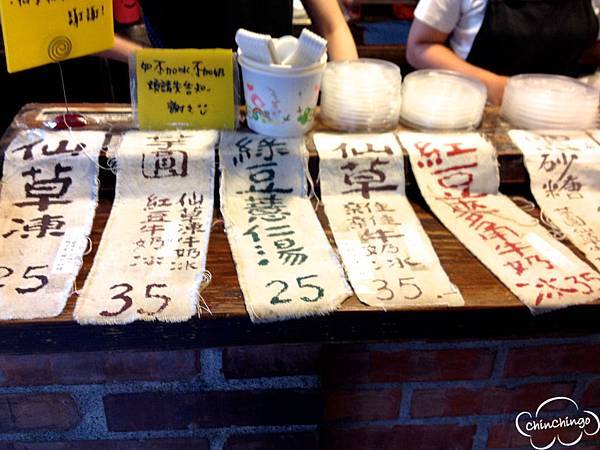 謝謝!
如不加冰、不加奶
煩請先告知.
謝謝
仙草凍
25
草圓
仙草凍牛奶冰
紅豆牛奶冰
35
綠豆薏仁湯
25
仙草
牛奶冰
35
紅豆
牛奶冰
35
砂糖
chinchingo